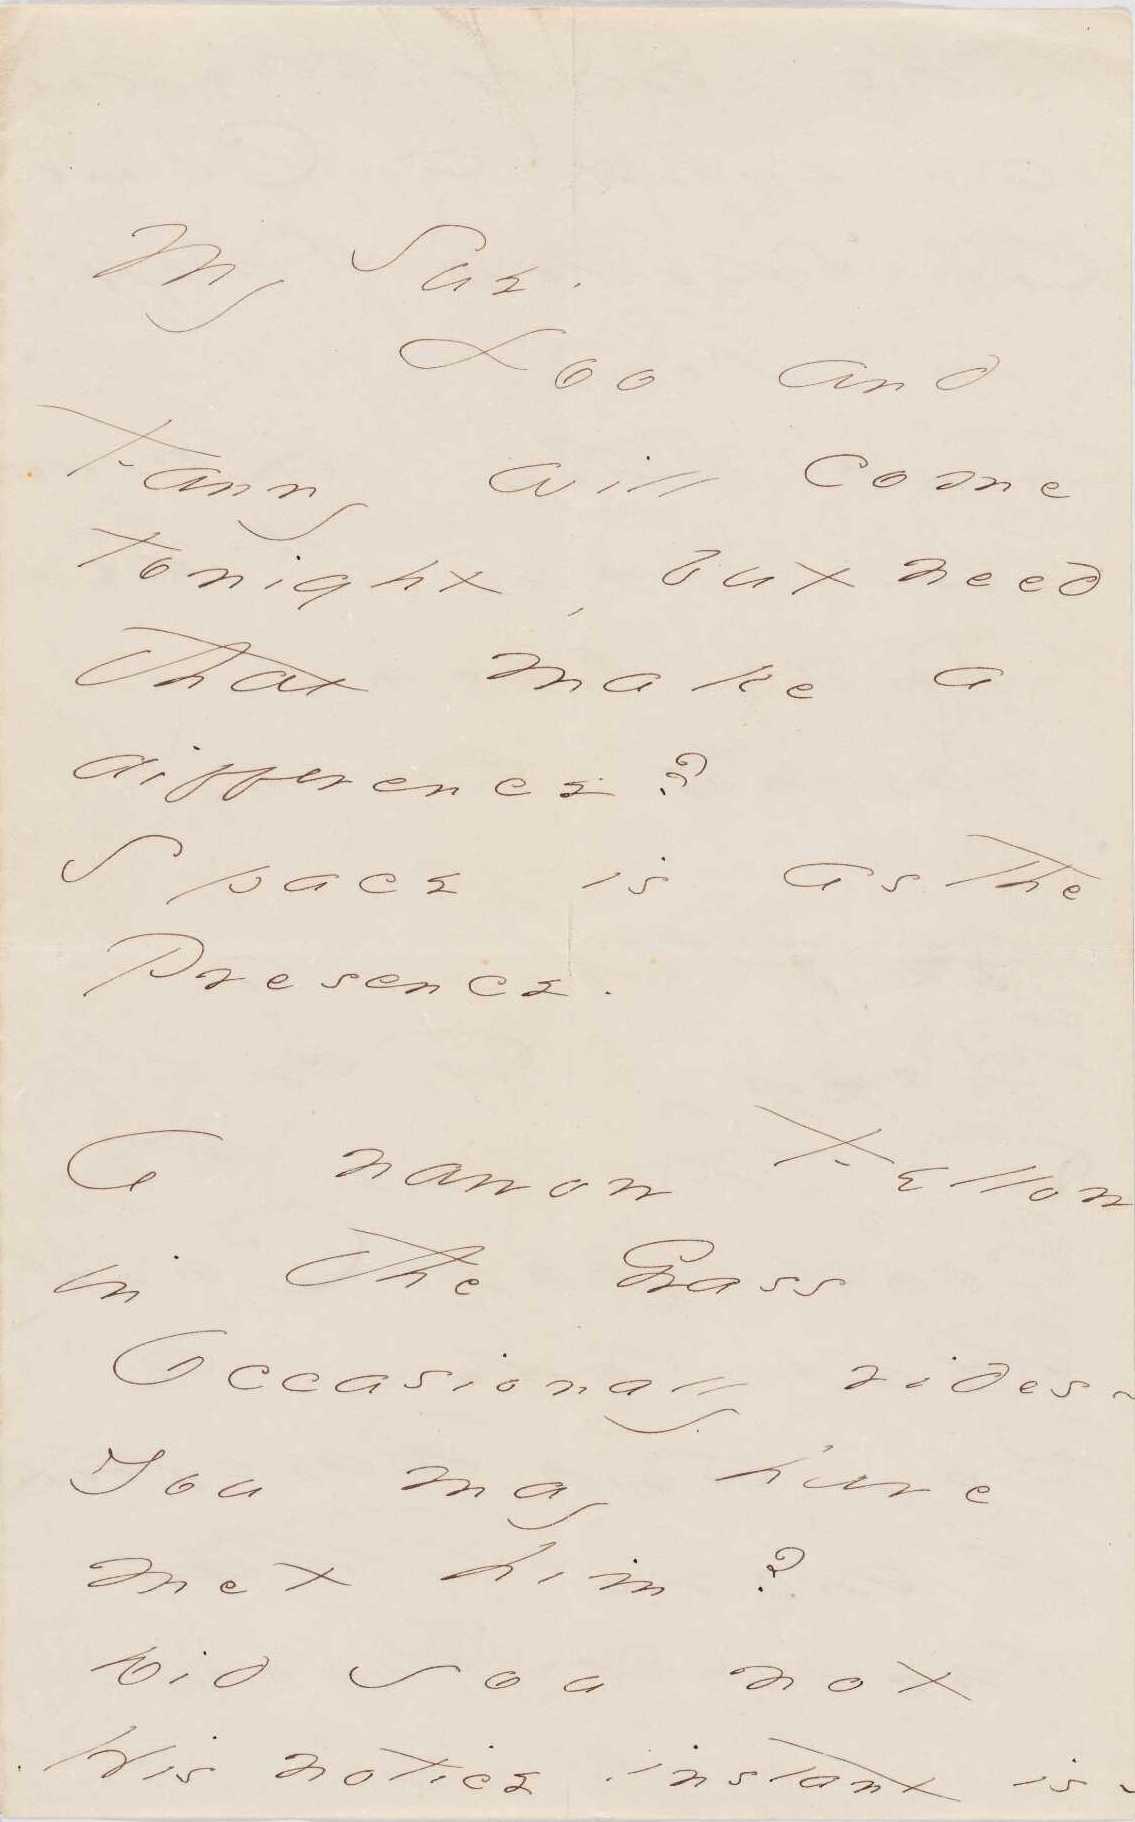 My Sue.
Loo and
Fanny will come
tonight, but need
that make a
difference?
Space is as the
Presence.
A narrow Fellow
in the Grass
Occasionally rides -
You may have
met him?
Did you not
His notice instant is -